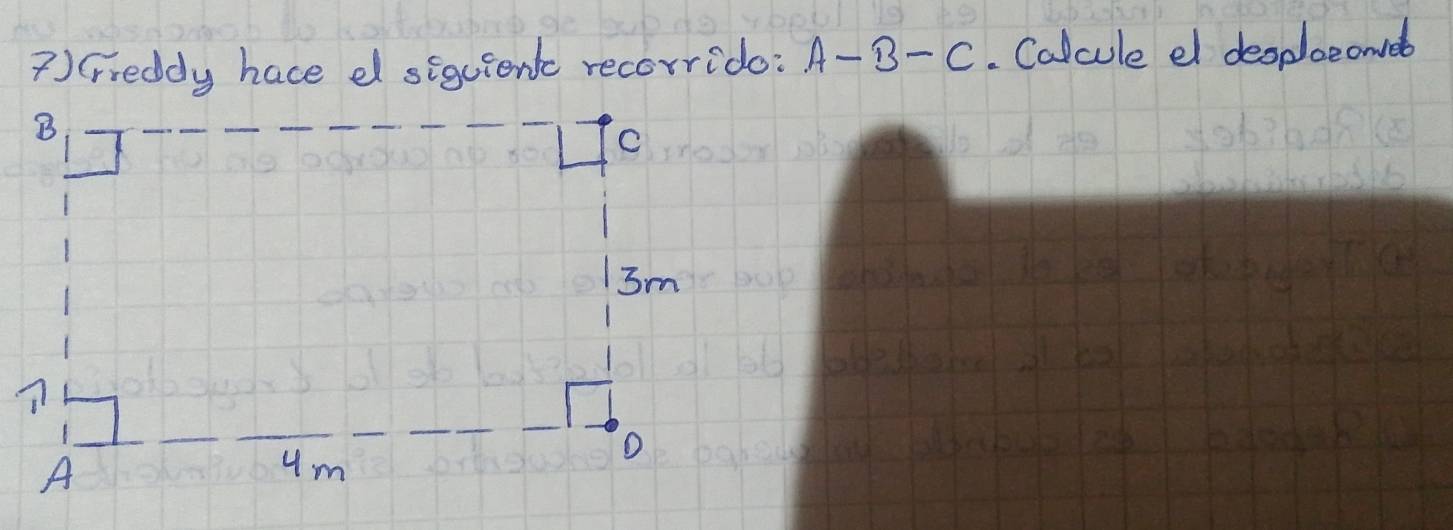 7) Freddy hace el siguiente recorrido: A-B-C. Calcule el desplazamiento
B
C
3m
A
4m
D